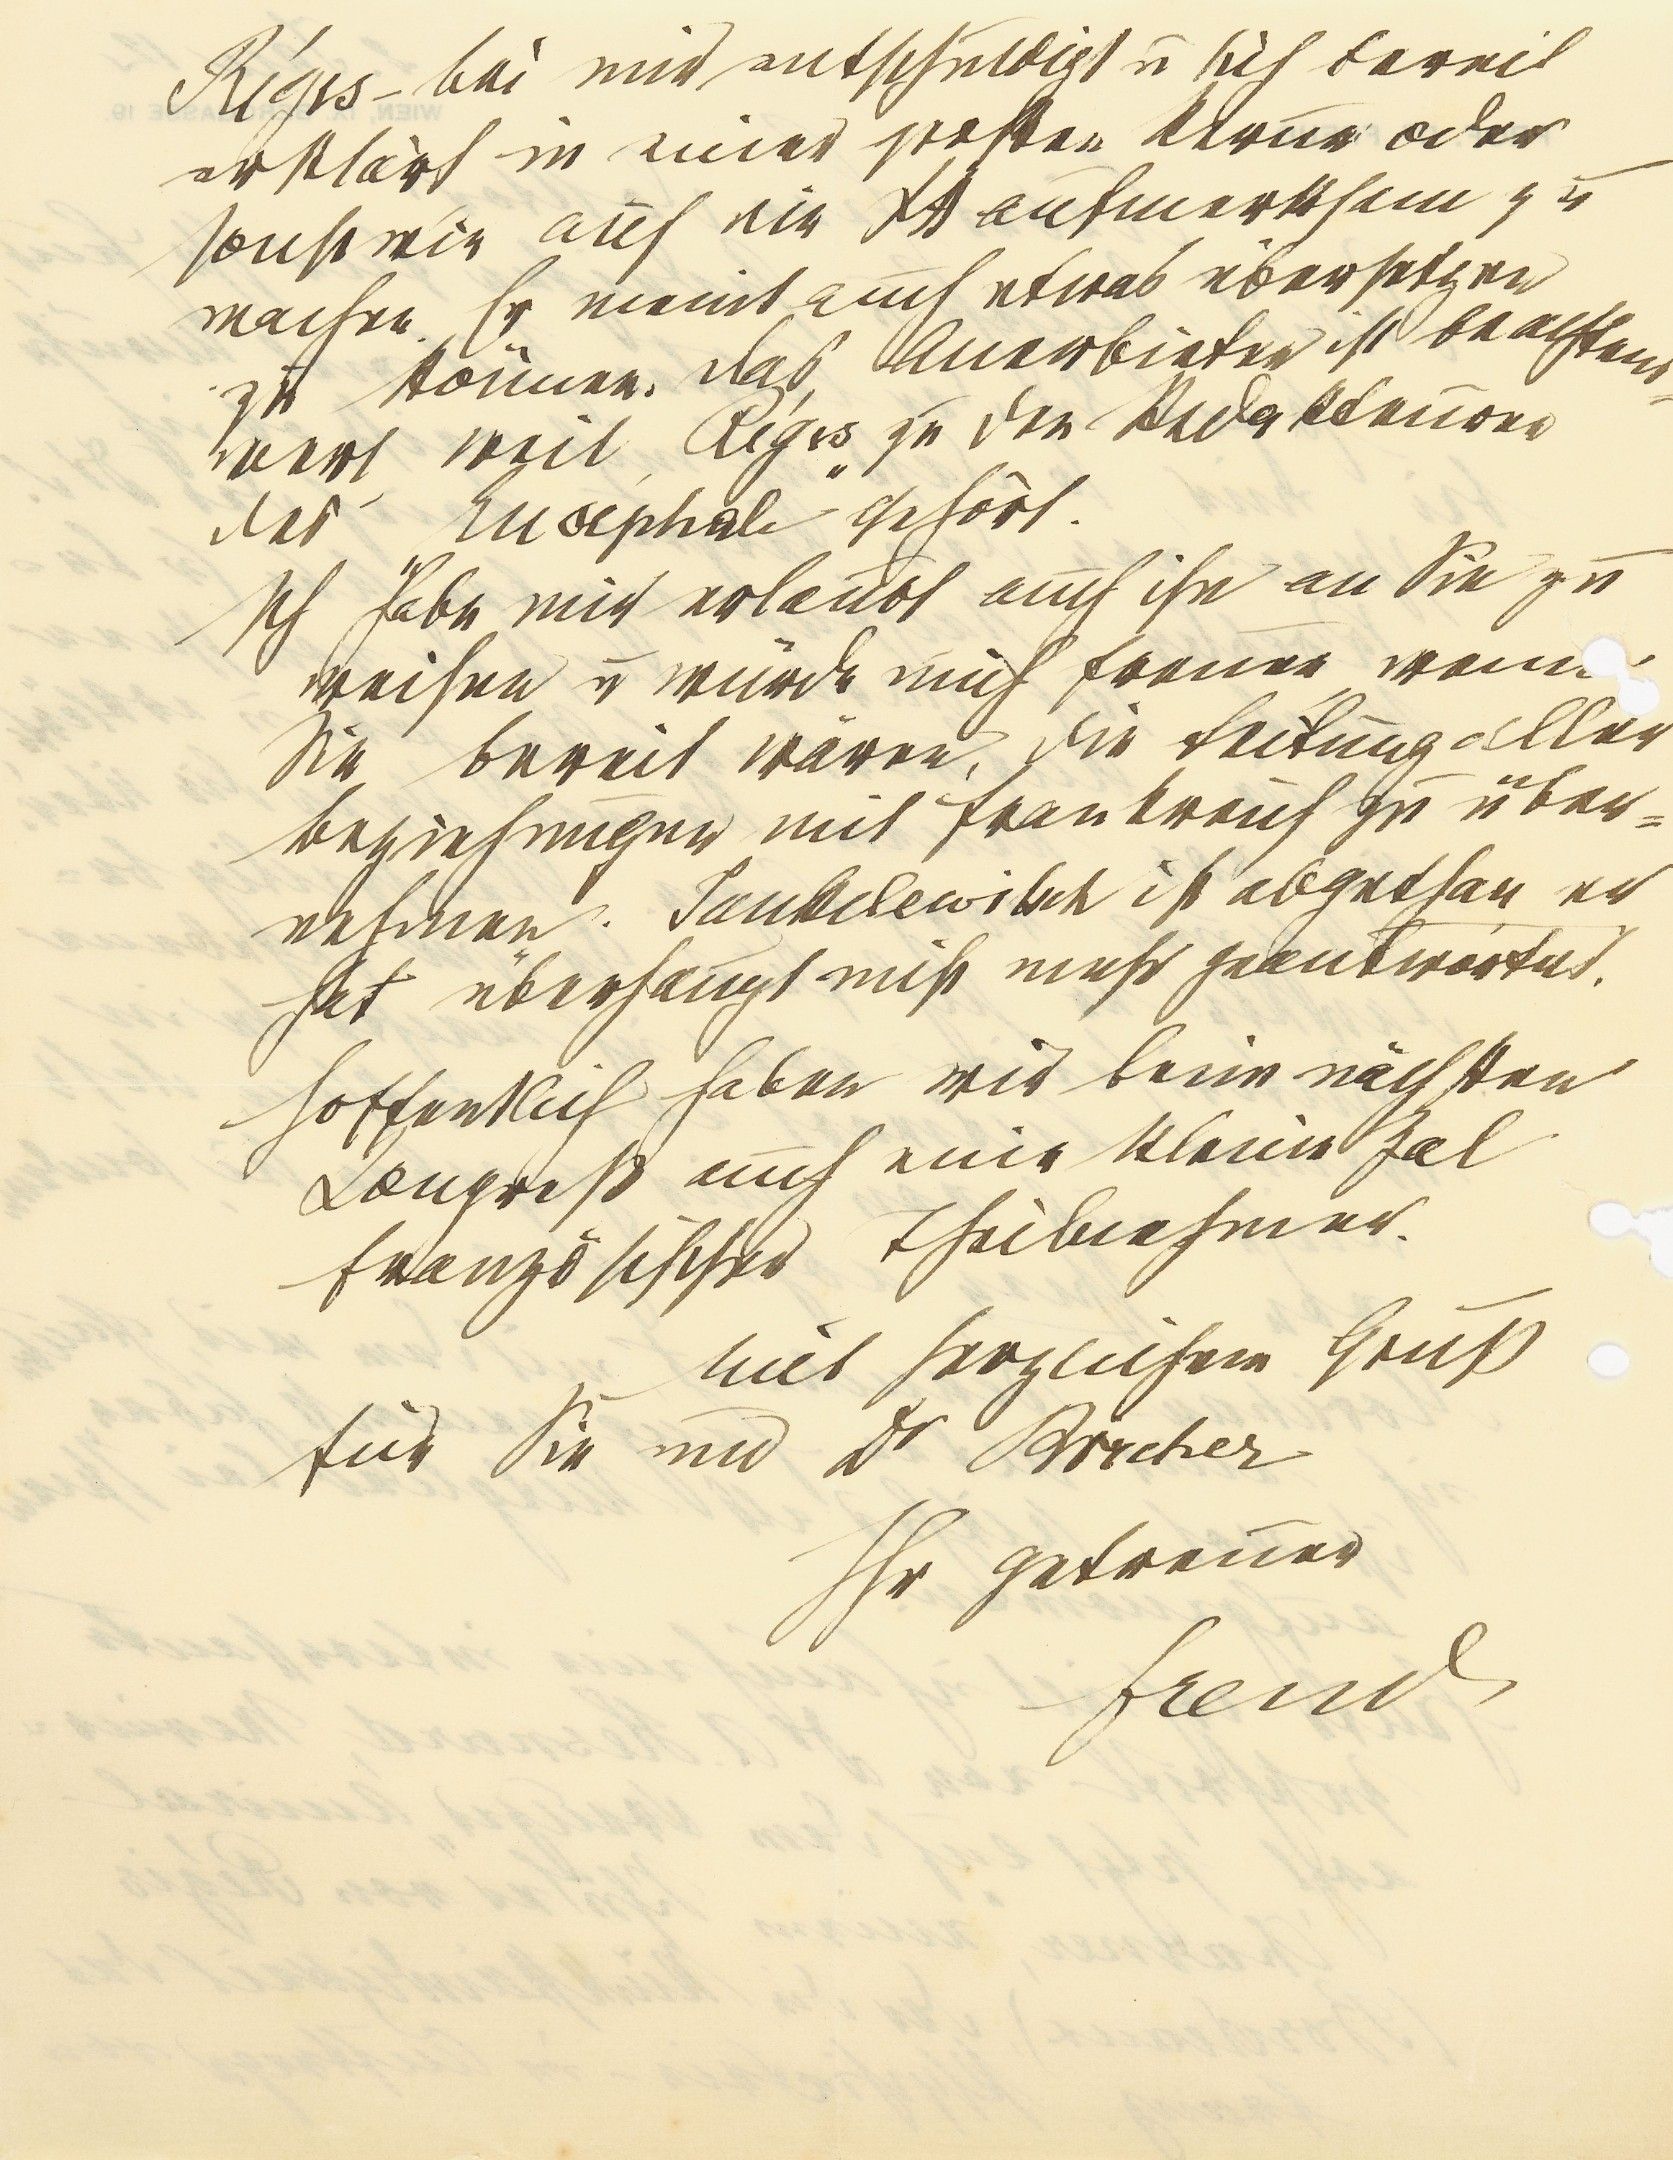 Régis – bei mir entschuldigt u sich bereit
erklärt in einer großen Revue oder
sonst wie auf die ΨA aufmerksam zu
machen. Er meint auch etwas übersetzen
zu können. Das Anerbieten ist beachtens-
wert weil Régis zu den Redakteuren
des „Encéphale“ gehört.
Ich habe mir erlaubt auch ihn an Sie zu
weisen u würde mich freuen wenn
Sie bereit wären, die Leitung aller
Beziehungen mit Frankreich zu über=
nehmen. Jankelewitsch ist abgethan er
hat überhaupt nicht mehr geantwortet.
Hoffentlich haben wir beim nächsten
Congreß auch eine kleine Zal
französischer Theilnehmer.
Mit herzlichem Gruß
für Sie und Dr
Ihr getreuer
Freud